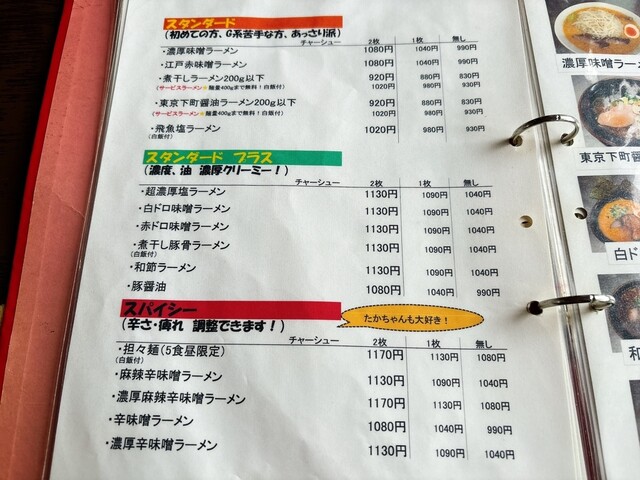 スタンダード
(初めての方、G系苦手な方、あっさり派)
チャーシュー 2枚 1枚 無し
・濃厚味噌ラーメン 1080円 1040円 990円
・江戸赤味噌ラーメン 1080円 1040円 990円
・煮干しラーメン200g以下 920円 880円 830円
(サービスラーメン★麺量400gまで無料！白飯付) 1020円 980円 930円
・東京下町醤油ラーメン200g以下 920円 880円 830円
(サービスラーメン★麺量400gまで無料！白飯付) 1020円 980円 930円
・飛魚塩ラーメン 1020円 980円 930円
(白飯付)
スタンダード プラス
(濃度、油 濃厚クリーミー！)
チャーシュー 2枚 1枚 無し
・超濃厚塩ラーメン 1130円 1090円 1040円
・白ドロ味噌ラーメン 1130円 1090円 1040円
・赤ドロ味噌ラーメン 1130円 1090円 1040円
・煮干し豚骨ラーメン 1130円 1090円 1040円
(白飯付)
・和節ラーメン 1130円 1090円 1040円
・豚醤油 1080円 1040円 990円
スパイシー
(辛さ・痺れ 調整できます！)
たかちゃんも大好き！
チャーシュー 2枚 1枚 無し
・担々麺(5食昼限定) 1170円 1130円 1080円
(白飯付)
・麻辣辛味噌ラーメン 1130円 1090円 1040円
・濃厚麻辣辛味噌ラーメン 1170円 1130円 1080円
・辛味噌ラーメン 1080円 1040円 990円
・濃厚辛味噌ラーメン 1130円 1090円 1040円
濃厚味噌ラーメン
東京下町醤
白ド
和